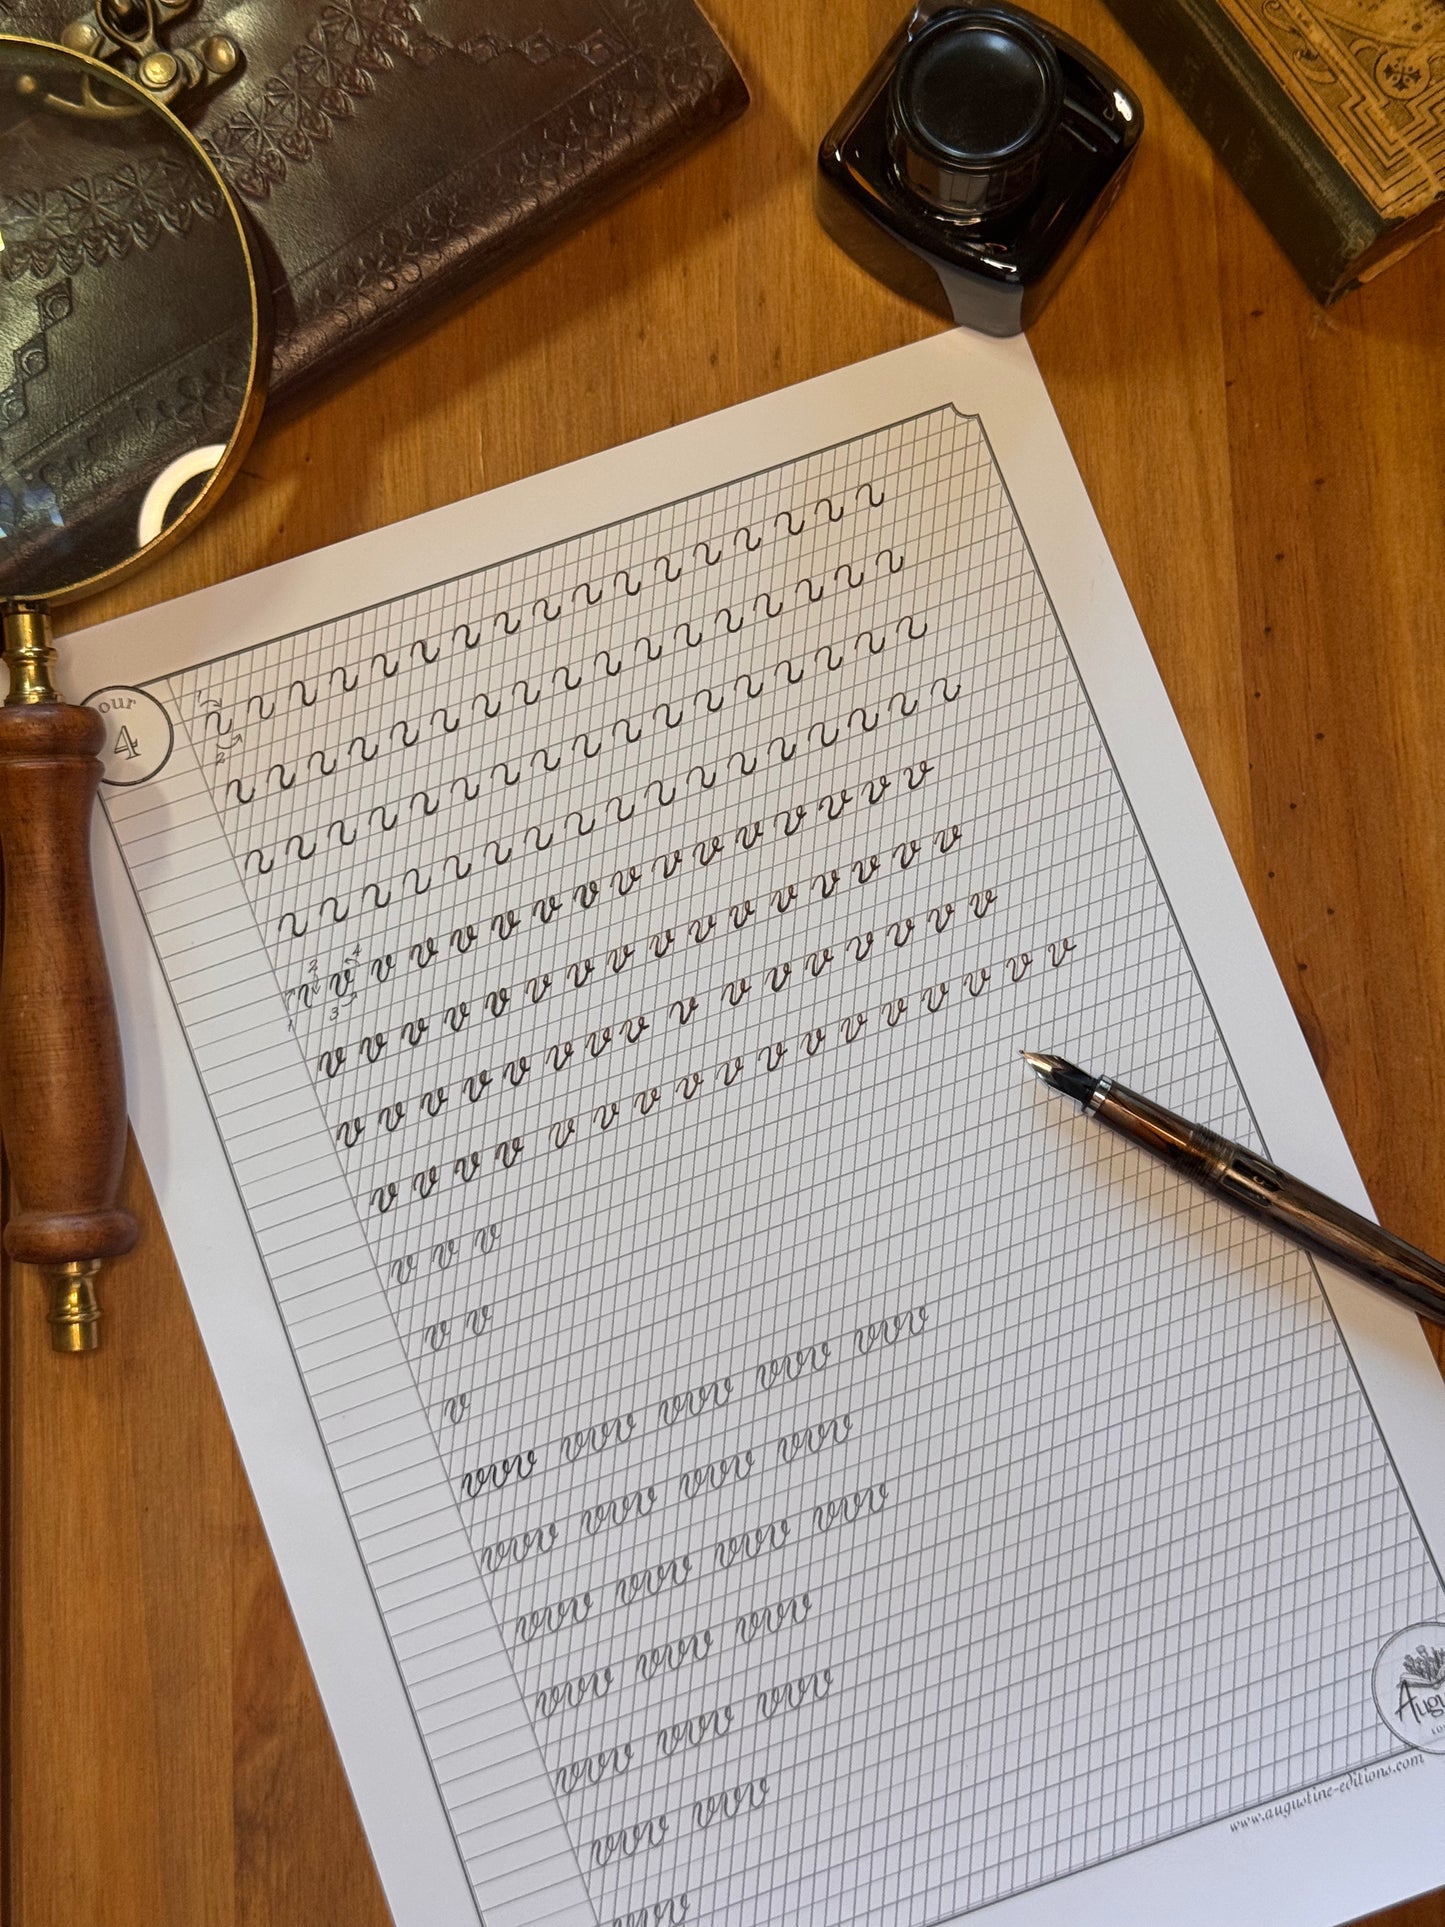 our
4
1
2
2 4
v v v v v v v v v v v v v v v
1 3
v v v v v v v v v v v v v v v v
v v v v v v v v v v v v v v v v
v v v v v v v v v v v v v v v v v
v v v
v v
v
vvv vvv vvv vvv vvv
vvv vvv vvv vvv
vvv vvv vvv vvv
vvv vvv vvv
vvv vvv vvv
vvv vvv
vvv
www.augustine-editions.com